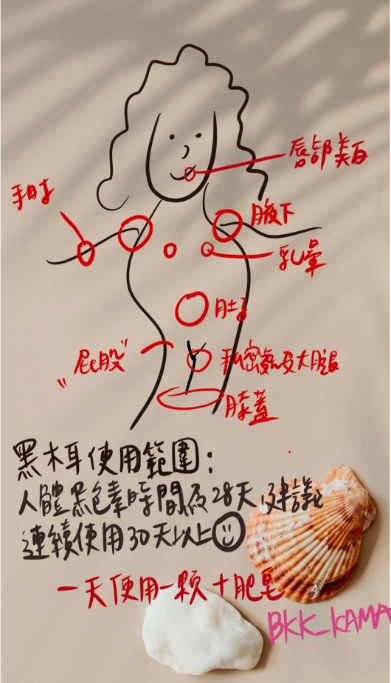 唇部美白
手肘
腋下
乳暈
肚子
"屁股"
私密處及大腿
膝蓋
黑木耳使用範圍：
人體黑色素時間為28天,建議
連續使用30天以上
一天使用一顆+肥皂
BKK_KAMA